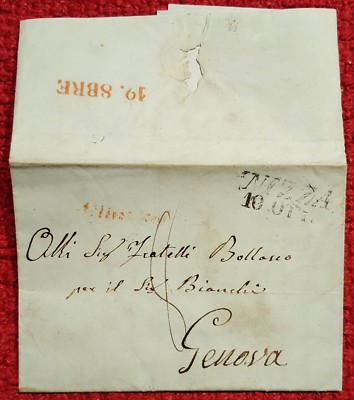 19. 8BRE
NIZZA
10 OTT
Alli Sig.ri Fratelli Bollasco
per il Sig. Bianchi
Genova